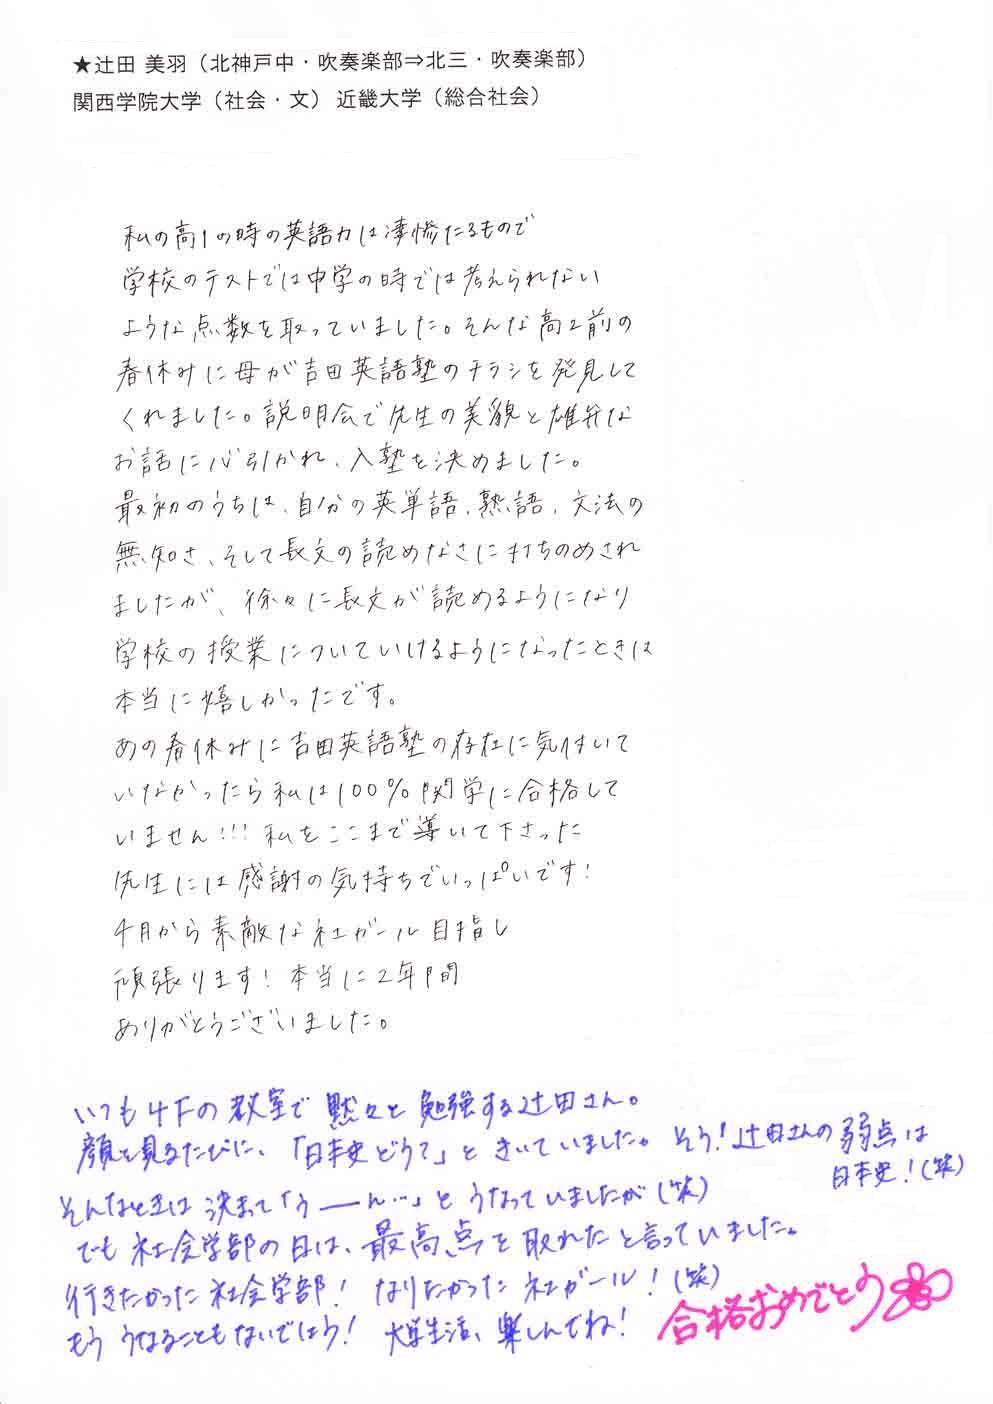 ★辻田 美羽（北神戸中・吹奏楽部⇒北三・吹奏楽部）
関西学院大学（社会・文） 近畿大学（総合社会）
私の高1の時の英語力は凄惨たるもので
学校のテストでは中学の時では考えられない
ような点数を取っていました。そんな高2前の
春休みに母が吉田英語塾のチラシを発見して
くれました。説明会で先生の美貌と雄弁な
お話に心引かれ、入塾を決めました。
最初のうちは、自分の英単語、熟語、文法の
無知さ、そして長文の読めなさに打ちのめされ
ましたが、徐々に長文が読めるようになり
学校の授業についていけるようになったときは
本当に嬉しかったです。
あの春休みに吉田英語塾の存在に気付いて
いなかったら私は100%関学に合格して
いません!!!私をここまで導いて下さった
先生には感謝の気持ちでいっぱいです!
4月から素敵な社ガール目指し
頑張ります!本当に2年間
ありがとうございました。
いつも4Fの教室で黙々と勉強する辻田さん。
顔を見るたびに、「日本史どう?」ときいていました。そう!辻田さんの弱点は
日本史!(笑)
そんなときは決まって「うーーん…」とうなっていましたが(笑)
でも社会学部の日は、最高点を取れたと言っていました。
行きたかった社会学部! なりたかった社ガール!(笑)
もううなることもないでしょう! 大学生活、楽しんでね!
合格おめでとう